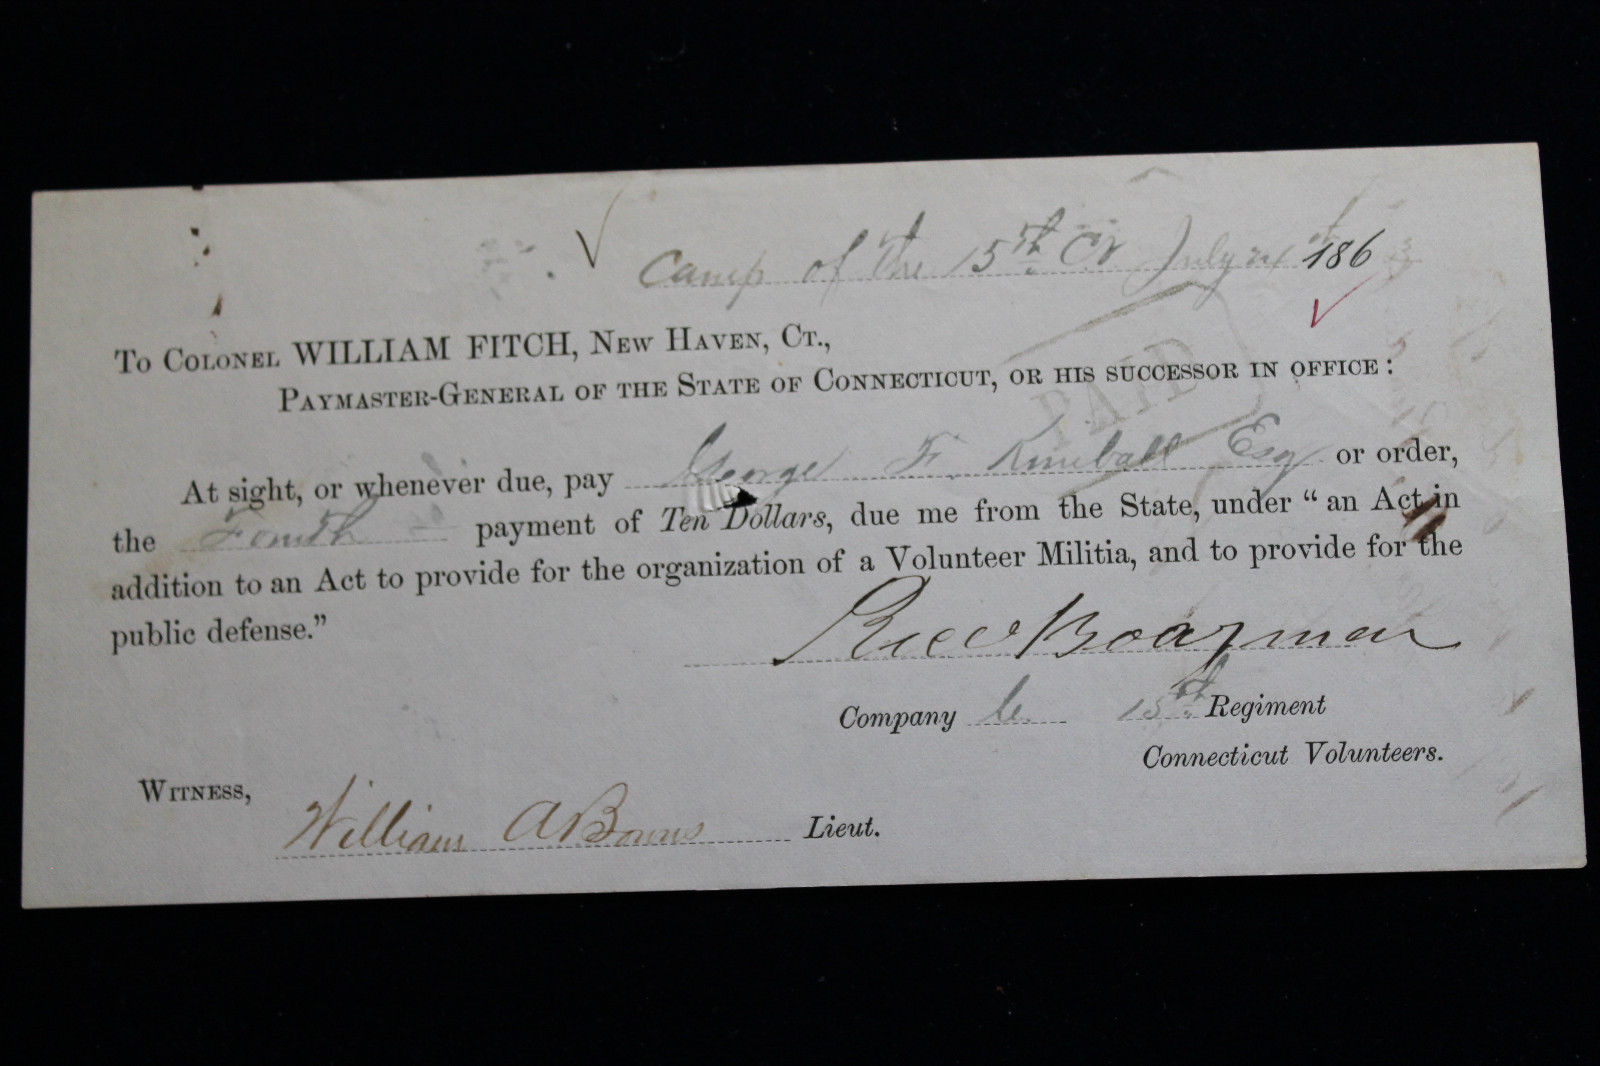 Camp of the 15th CV July 21st 1863
To Colonel WILLIAM FITCH, New Haven, Ct.,
Paymaster-General of the State of Connecticut, or his successor in office:
PAID
At sight, or whenever due, pay George F. Kimball Esq or order,
the Fourth payment of Ten Dollars, due me from the State, under “an Act in
addition to an Act to provide for the organization of a Volunteer Militia, and to provide for the
public defense.”
Boazman
Company 15th Regiment
Connecticut Volunteers.
Witness,
William A Bowns Lieut.